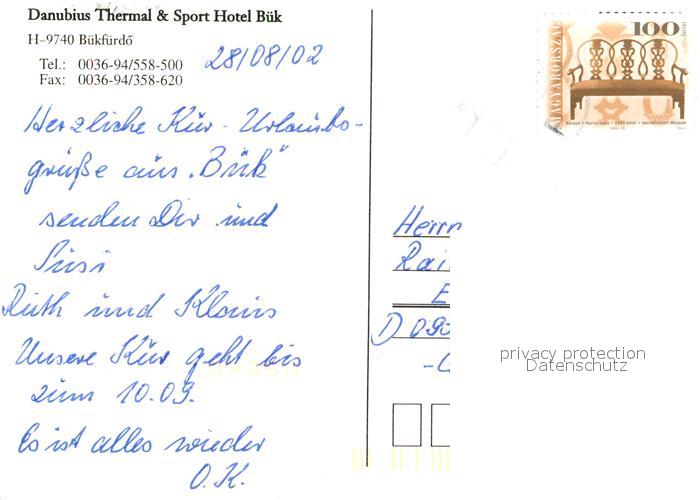 Danubius Thermal & Sport Hotel Bük
H–9740 Bükfürdő
Tel.: 0036-94/558-500
Fax: 0036-94/358-620
28/08/02
MAGYARORSZÁG
100
Herzliche Kür - Urlaubs-
grüße aus „Bük"
senden Dir und
Susi
Ruth und Klaus
Unsere Kür geht bis
zum 10.09.
Es ist alles wieder
O.K.
Herrn
Rai
E
D 09
privacy protection
Datenschutz